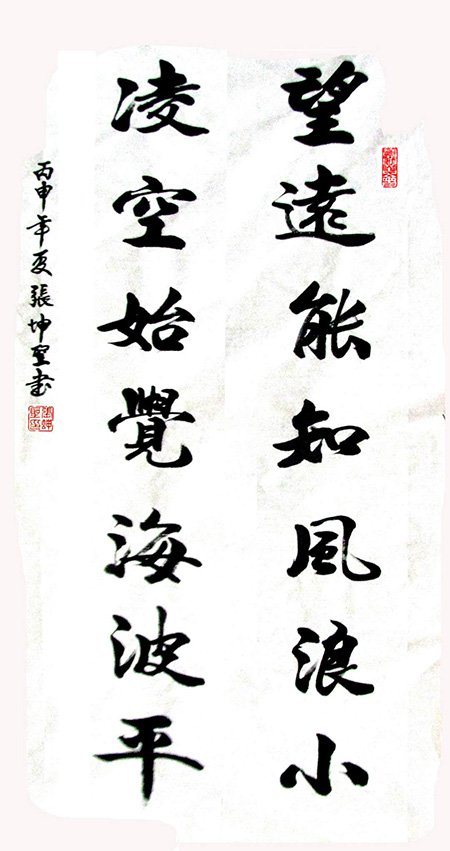 望遠能知風浪小
凌空始覺海波平
丙申年夏張坤聖書